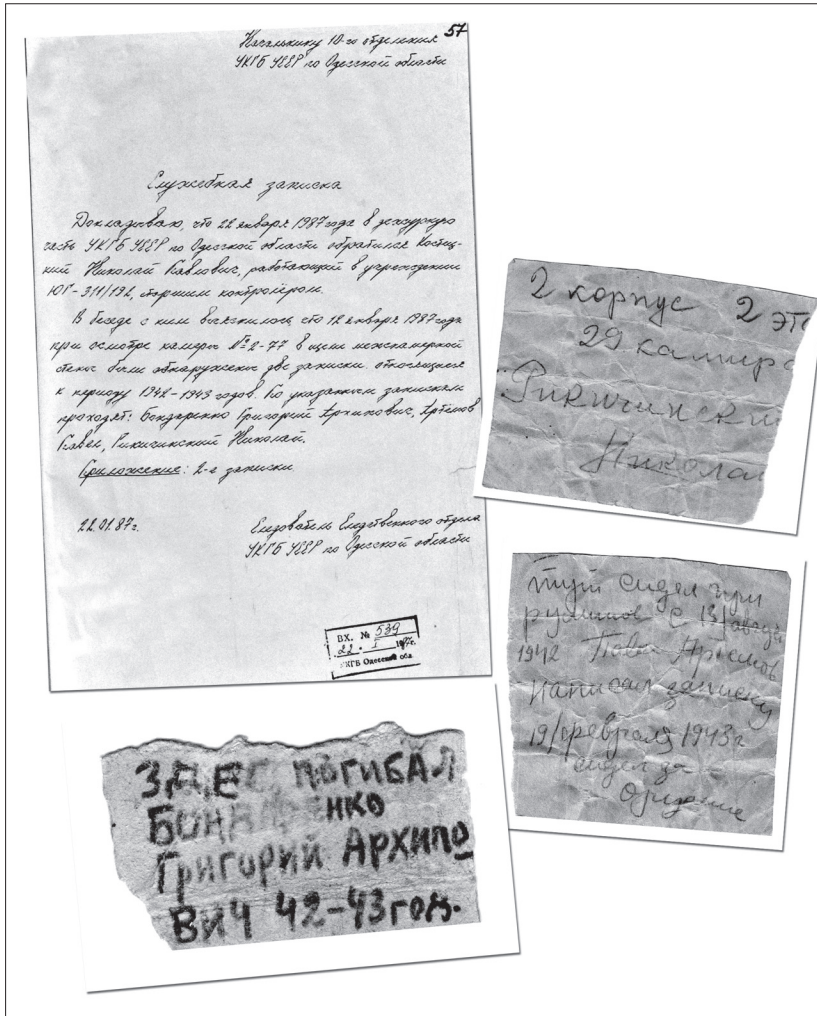 57
Начальнику 10-го отделения
УКГБ УССР по Одесской области
Служебная записка
Докладываю, что 22 января 1987 года в дежурную
часть УКГБ УССР по Одесской области обратился Костиц-
кий Николай Павлович, работающий в учреждении
ЮГ-311/192, старшим контролёром.
В беседе с ним выяснилось, что 12 января 1987 года
при осмотре камеры №2-77 в щели межкамерной
стены были обнаружены две записки, относящиеся
к периоду 1942-1943 годов. По указанным запискам
проходят: Бондаренко Григорий Архипович, Артёмов
Павел, Рикичинский Николай.
Приложение: 2-е записки.
22.01.87г.
Следователь Следственного отдела
УКГБ УССР по Одесской области
ВХ. № 539
22 I 1987г.
УКГБ Одесской обл.
2 корпус 2 эта
29 камера
Рикичински
Никола
тут сидел при
румынов с 13/
1942 Павел Артемов
написал записку
19/февраля 1943г
сидел за
оружие
ЗДЕС ПОГИБАЛ
БОНДАРЕНКО
ГРИГОРИЙ АРХИПО
ВИЧ 42-43 год.